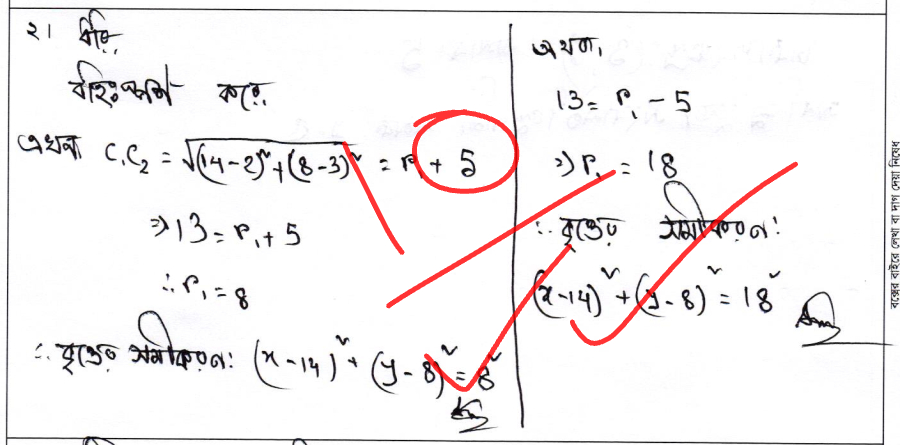 ২। ধরি,
বহিঃস্পর্শ করে,
এখন C₁C₂ = √((14-2)² + (8-3)²) = r₁ + 5
⇒ 13 = r₁ + 5
∴ r₁ = 8
∴ বৃত্তের সমীকরণ: (x-14)² + (y-8)² = 8²
অথবা,
13 = r₁ - 5
⇒ r₁ = 18
∴ বৃত্তের সমীকরণ:
(x-14)² + (y-8)² = 18²
বক্সের বাইরে লেখা বা দাগ দেয়া নিষেধ